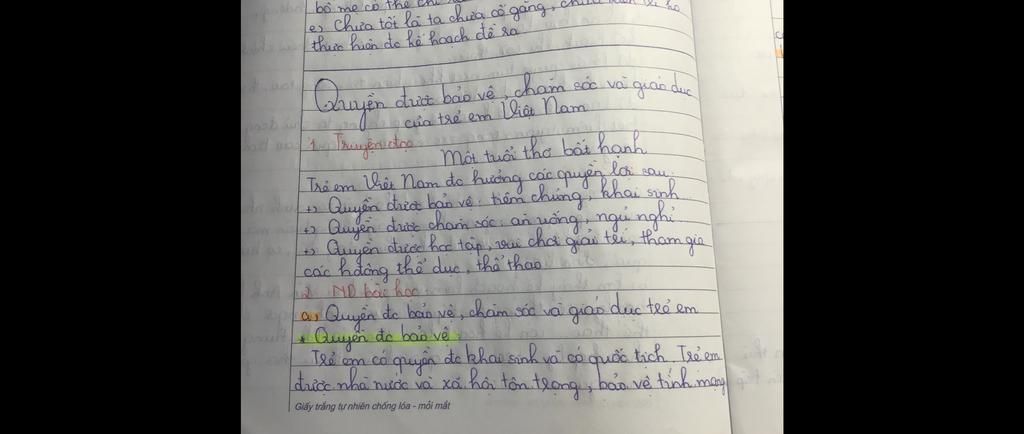 bố mẹ có thể chỉ
e, Chưa tốt là ta chưa cố gắng,
thực hiện đc kế hoạch đề ra
Quyền được bảo vệ, chăm sóc và giáo dục
của trẻ em Việt Nam
1. Truyện đọc
Một tuổi thơ bất hạnh
Trẻ em Việt Nam đc hưởng các quyền lợi sau:
+, Quyền được bảo vệ: tiêm chủng, khai sinh
+, Quyền được chăm sóc: ăn uống, ngủ nghỉ
+, Quyền được học tập, vui chơi giải trí, tham gia
các hđộng thể dục, thể thao
2. ND bài học
a, Quyền đc bảo vệ, chăm sóc và giáo dục trẻ em
* Quyền đc bảo vệ:
Trẻ em có quyền đc khai sinh và có quốc tịch. Trẻ em
được nhà nước và xã hội tôn trọng, bảo vệ tính mạng
Giấy trắng tự nhiên chống lóa - mỏi mắt